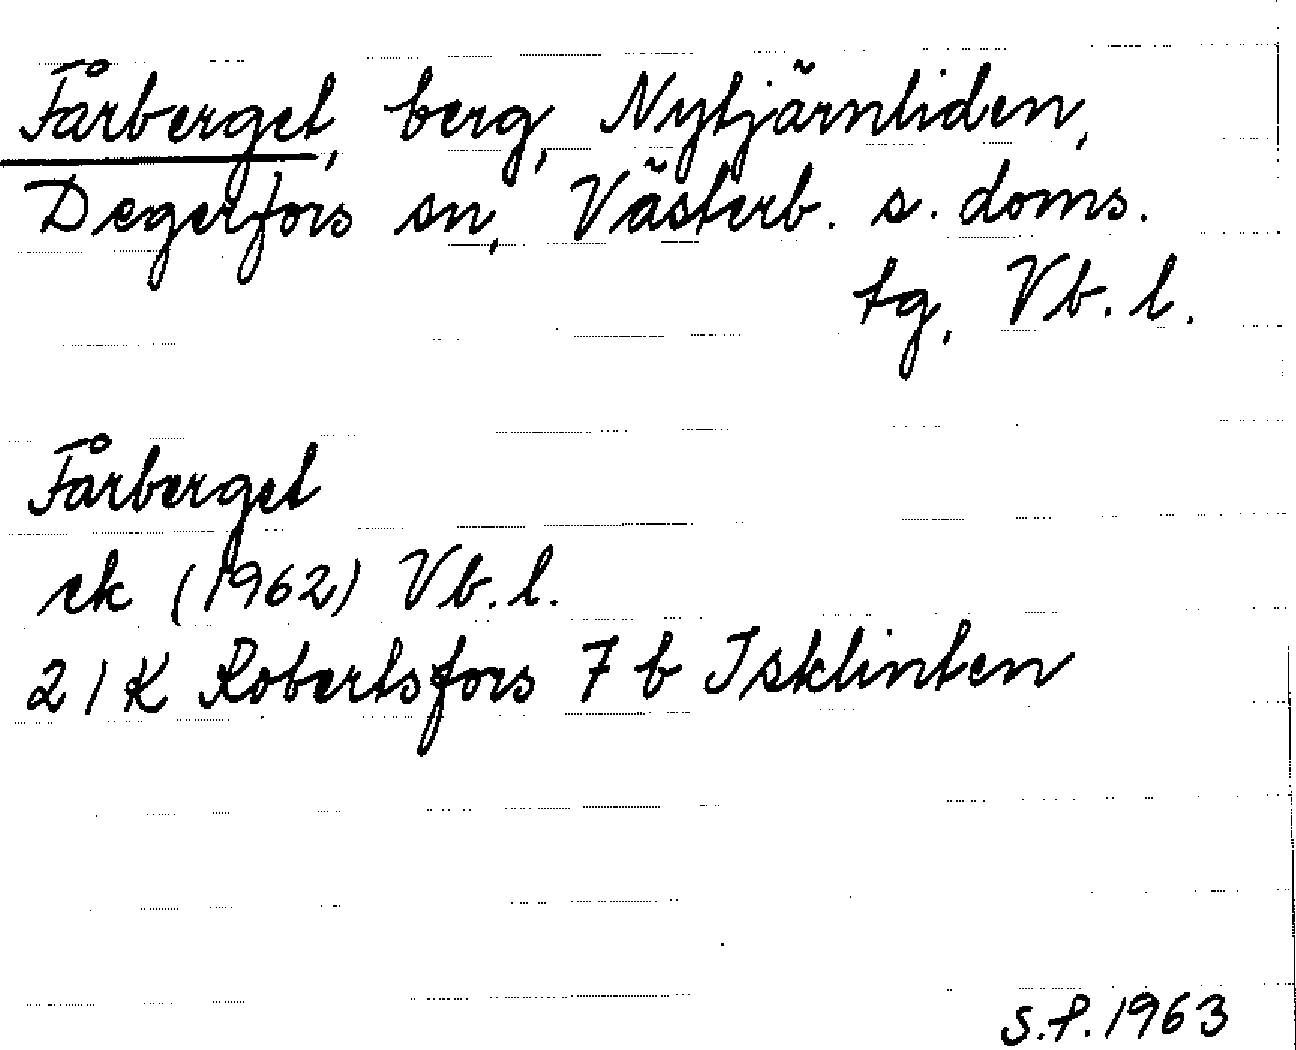 Fårberget, berg, Nytjärnliden,
Degerfors sn, Västerb. s. doms.
tg, Vb. l.
Fårberget
ek (1962) Vb. l.
21K Robertsfors 7 b Isklinten
S.P. 1963